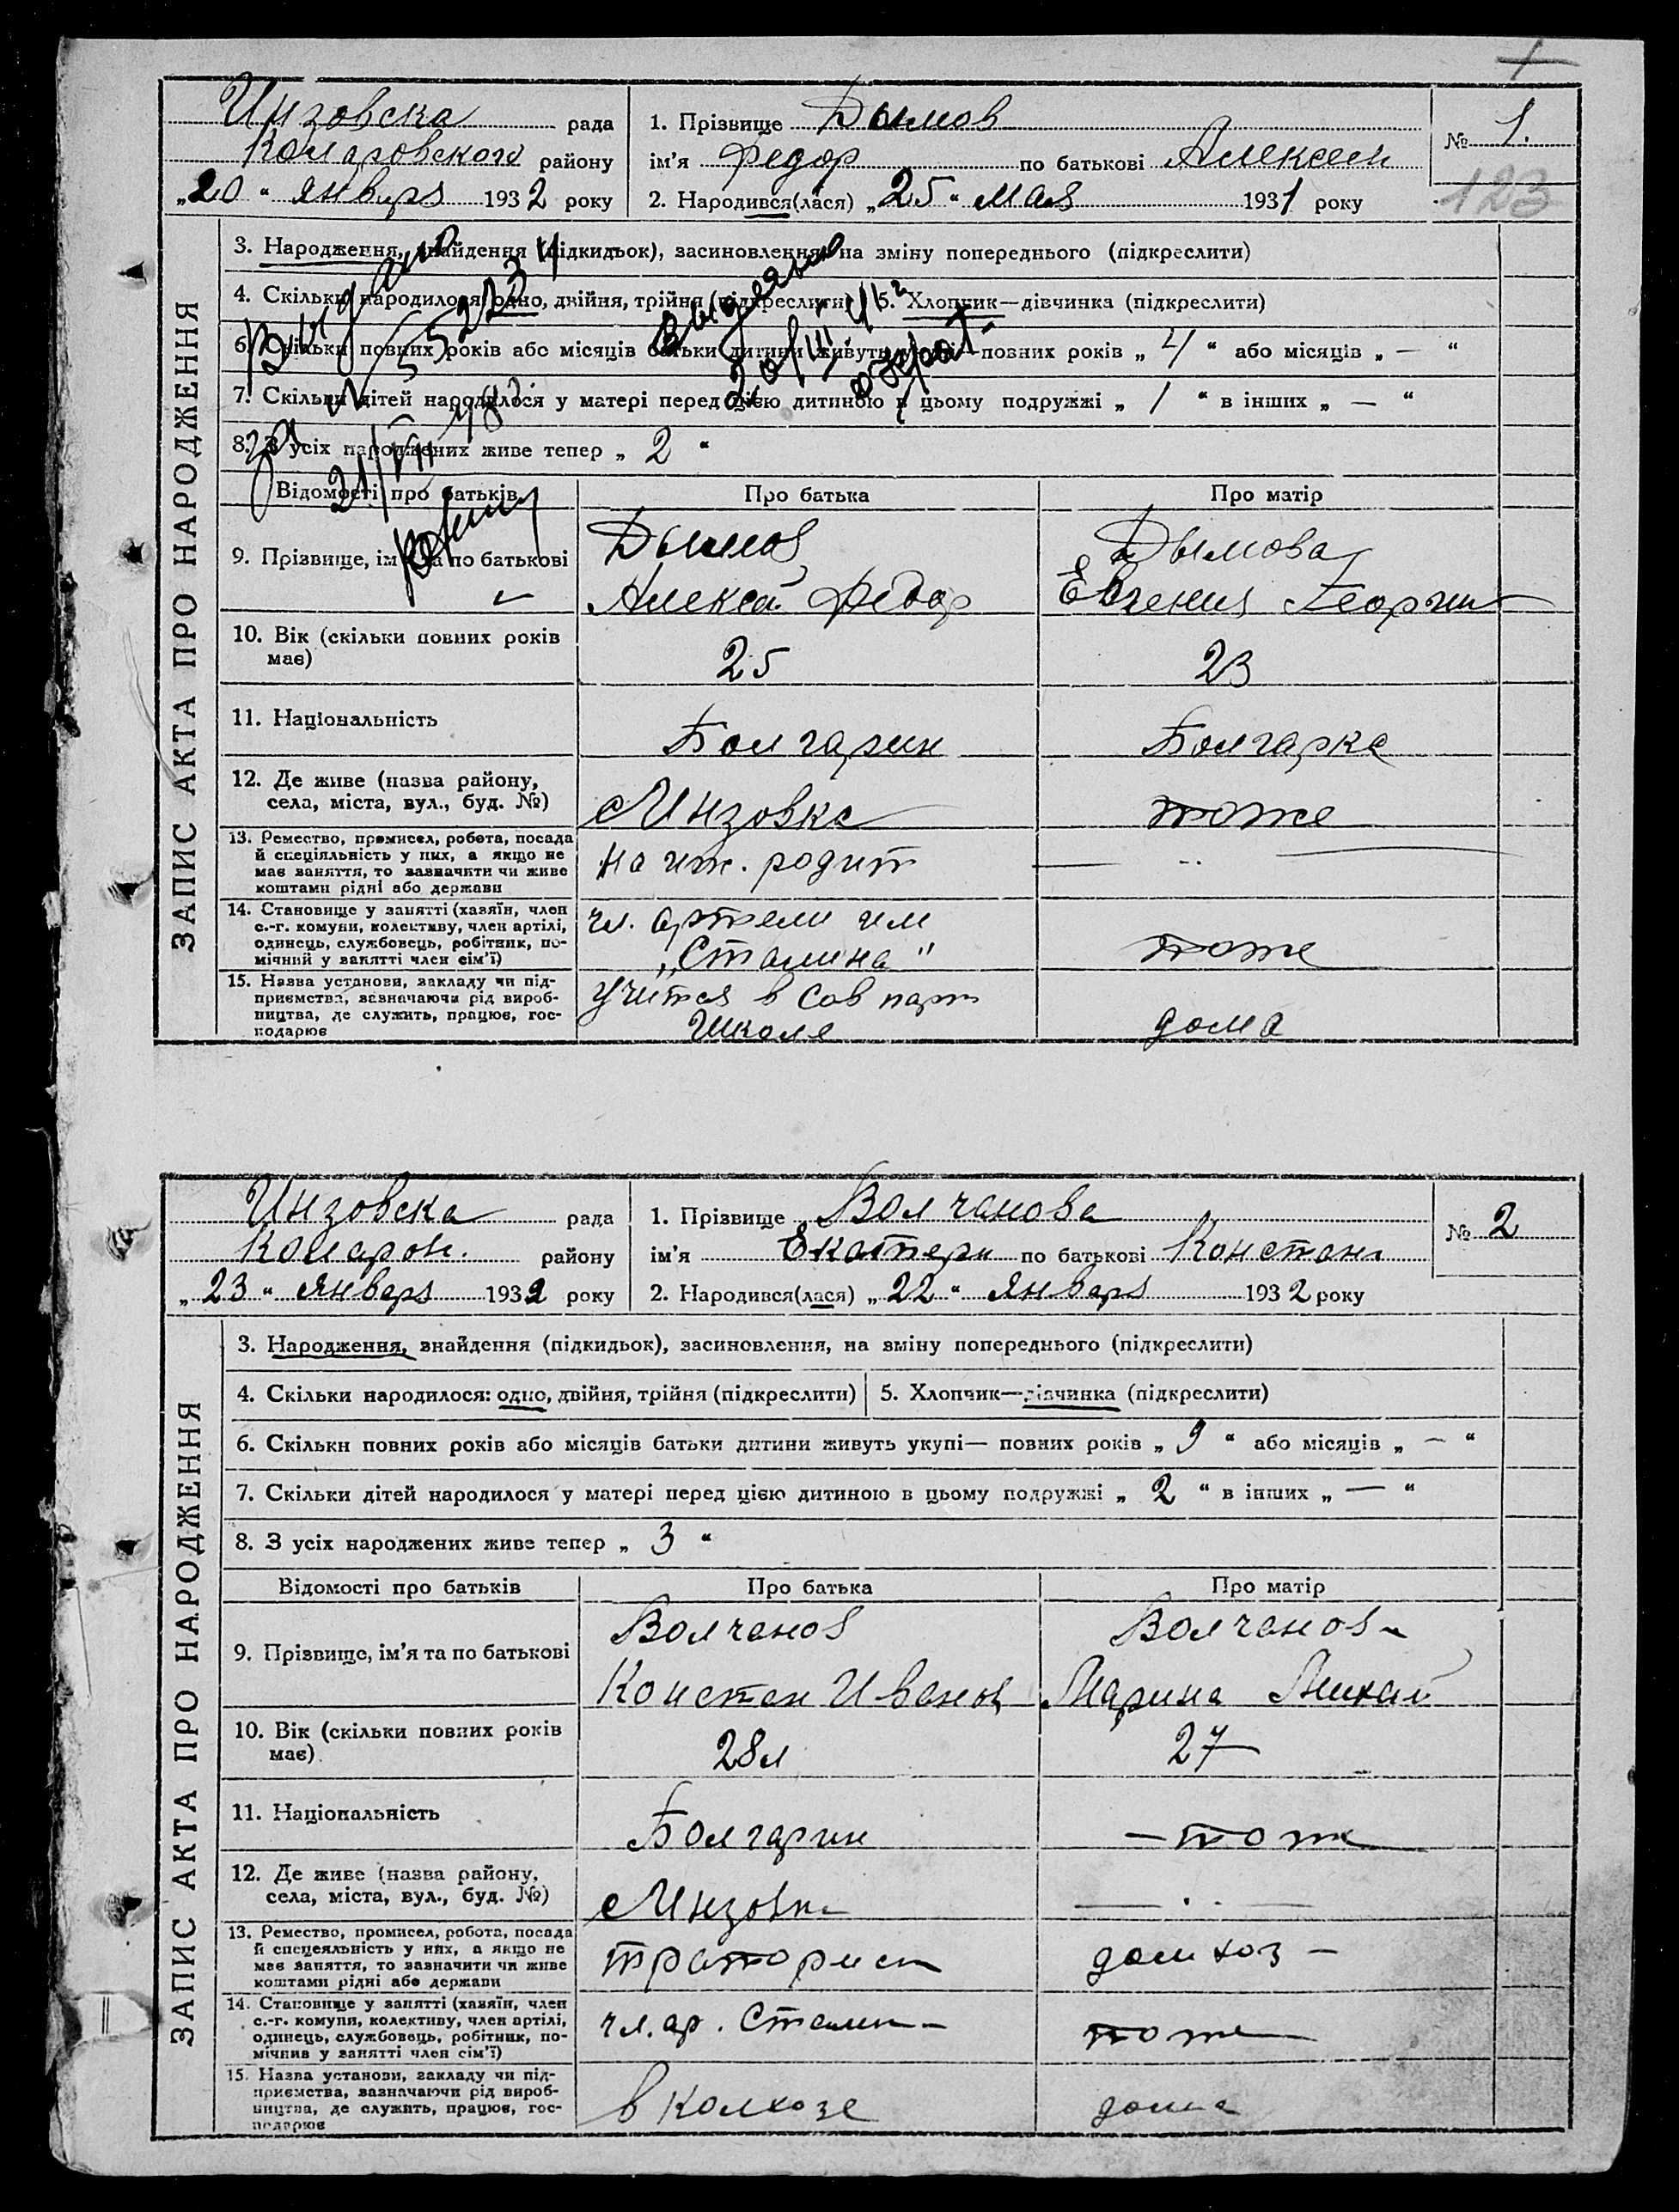 Инзовска рада
Комаровского району
„20“ январь 1932 року
1. Прізвище Дымов
ім'я Федор по батькові Алексеи
2. Народився(лася) „25“ мая 1931 року
№ 1.
123
ЗАПИС АКТА ПРО НАРОДЖЕННЯ
3. Народження, знайдення (підкидьок), засиновлення, на зміну попереднього (підкреслити)
4. Скільки народилося: одно, двійня, трійня (підкреслити) 5. Хлопчик—дівчинка (підкреслити)
6. Скільки повних років або місяців батьки дитини живуть укупі—повних років „4“ або місяців „—“
7. Скільки дітей народилося у матері перед цією дитиною в цьому подружжі „1“ в інших „—“
8. З усіх народжених живе тепер „2“
Відомості про батьків Про батька Про матір
9. Прізвище, ім'я та по батькові
Дымов Дымова
Алексей Федор Евгения Георгии
10. Вік (скільки повних років має) 25 23
11. Національність Болгарин Болгарка
12. Де живе (назва району, села, міста, вул., буд. №) Инзовка тоже
13. Ремество, промисел, робота, посада
й спеціяльність у них, а якщо не
має заняття, то зазначити чи живе
коштами рідні або держави
на иж. родит — ·· —
14. Становище у занятті (хазяїн, член
с.-г. комуни, колективу, член артілі,
одинець, службовець, робітник, по-
мічний у занятті член сім'ї)
чл. артели им
„Сталина“ тоже
15. Назва установи, закладу чи під-
приємства, зазначаючи рід вироб-
ництва, де служить, працює, гос-
подарює
учится в сов парт
школе дома
Выдано
выдано
Инзовска рада
Комаров. району
„23“ январь 1932 року
1. Прізвище Волчанова
ім'я Екатери по батькові Констан
2. Народився(лася) „22“ январь 1932 року
№ 2
ЗАПИС АКТА ПРО НАРОДЖЕННЯ
3. Народження, знайдення (підкидьок), засиновлення, на зміну попереднього (підкреслити)
4. Скільки народилося: одно, двійня, трійня (підкреслити) 5. Хлопчик—дівчинка (підкреслити)
6. Скільки повних років або місяців батьки дитини живуть укупі— повних років „9“ або місяців „—“
7. Скільки дітей народилося у матері перед цією дитиною в цьому подружжі „2“ в інших „—“
8. З усіх народжених живе тепер „3“
Відомості про батьків Про батька Про матір
9. Прізвище, ім'я та по батькові
Волчанов Волчанов
Констан Иванов Марина Михай
10. Вік (скільки повних років має) 28 л 27
11. Національність Болгарин — тож
12. Де живе (назва району, села, міста, вул., буд. №) Инзовк — ·· —
13. Ремество, промисел, робота, посада
й спецеяльність у них, а якщо не
має заняття, то зазначити чи живе
коштами рідні або держави
траторист дом хоз —
14. Становище у занятті (хазяїн, член
с.-г. комуни, колективу, член артілі,
одинець, службовець, робітник, по-
мічнив у занятті член сім'ї)
чл. ар. Сталин тоже
15. Назва установи, закладу чи під-
приємства, зазначаючи рід вироб-
ництва, де служить, працює, гос-
подарює
в колхозе дома